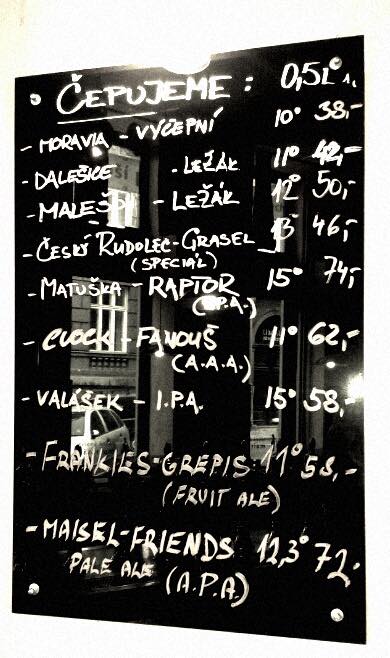 ČEPUJEME: 0,5l
- MORAVIA - VÝČEPNÍ 10° 38,-
- DALEŠICE - LEŽÁK 11° 42,-
- MALEŠOV - LEŽÁK 12° 50,-
- ČESKÝ RUDOLEC-GRASEL 13° 46,-
(SPECIÁL)
- MATUŠKA - RAPTOR 15° 74,-
(I.P.A.)
- CLOCK - FAMOUŠ 11° 62,-
(A.A.A.)
- VALÁŠEK - I.P.A. 15° 58,-
- FRANKIES-GREPIS 11° 58,-
(FRUIT ALE)
- MAISEL-FRIENDS 12,3° 72,-
PALE ALE (A.P.A)